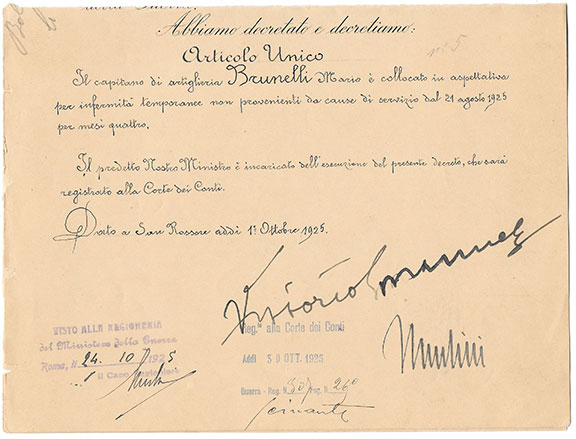 della Guerra;
Abbiamo decretato e decretiamo:
Articolo Unico
Il capitano di artiglieria Brunelli Mario è collocato in aspettativa
per infermità temporanee non provenienti da cause di servizio dal 21 agosto 1925
per mesi quattro.
Il predetto Nostro Ministro è incaricato dell'esecuzione del presente decreto, che sarà
registrato alla Corte dei Conti.
Dato a San Rossore addì 1º Ottobre 1925.
Vittorio Emanuele
Mussolini
VISTO ALLA RAGIONERIA
del Ministero della Guerra
Roma, li 24. 10 1925
Il Capo
Reg.to alla Corte dei Conti
Addì 30 OTT. 1925
Guerra - Reg. N.